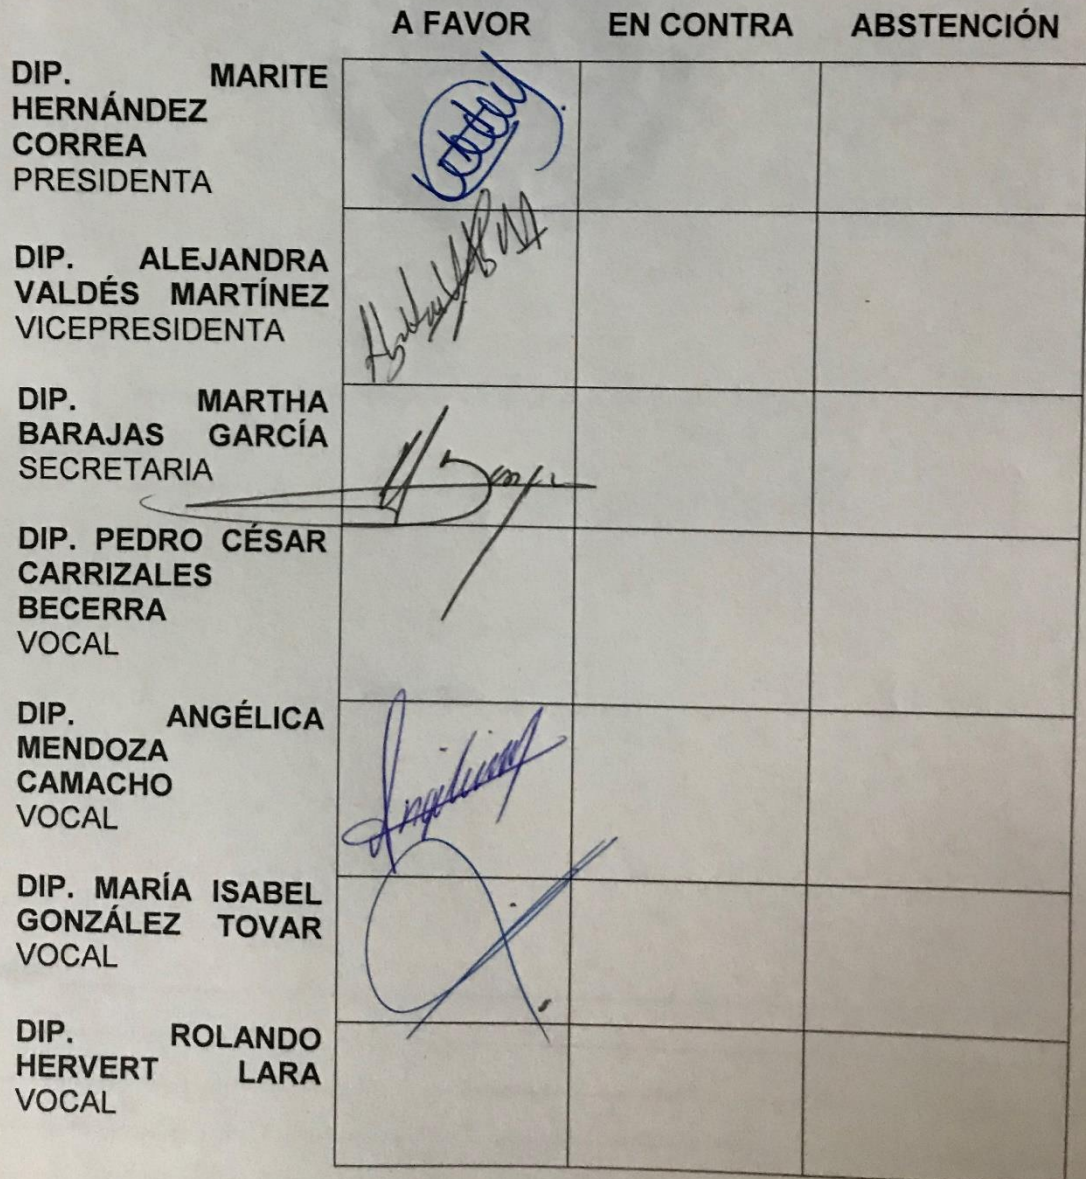 A FAVOR EN CONTRA ABSTENCIÓN
DIP. MARITE
HERNÁNDEZ
CORREA
PRESIDENTA
DIP. ALEJANDRA
VALDÉS MARTÍNEZ
VICEPRESIDENTA
DIP. MARTHA
BARAJAS GARCÍA
SECRETARIA
DIP. PEDRO CÉSAR
CARRIZALES
BECERRA
VOCAL
DIP. ANGÉLICA
MENDOZA
CAMACHO
VOCAL
DIP. MARÍA ISABEL
GONZÁLEZ TOVAR
VOCAL
DIP. ROLANDO
HERVERT LARA
VOCAL